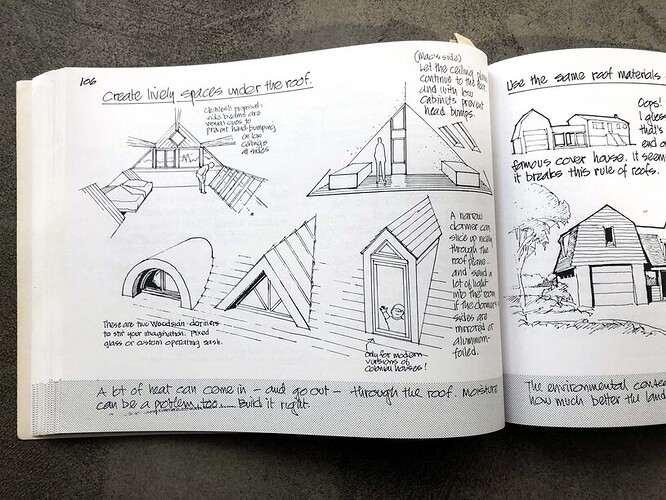 106
Create lively spaces under the roof.
Charles's proposal:
side beams are
visual cues to
prevent head-bumping
on low
ceilings
at sides
(Mac's side)
Let the ceiling plane
continue to the floor
and with low
cabinets prevent
head bumps.
These are two Woodskin dormers
to stir your imagination. Fixed
glass or custom operating sash.
A narrow
dormer can
slice up nicely
through the
roof plane
and send a
lot of light
into the room
if the dormer's
sides are
mirrored or
aluminum-
foiled.
Only for modern
versions of
colonial houses!
A lot of heat can come in – and go out – through the roof. Moisture
can be a problem, too.... Build it right.
Use the same roof materials
Oops!
I guess
that's
end o
famous cover house. It seem
it breaks this rule of roofs.
The environmental conse
how much better the land